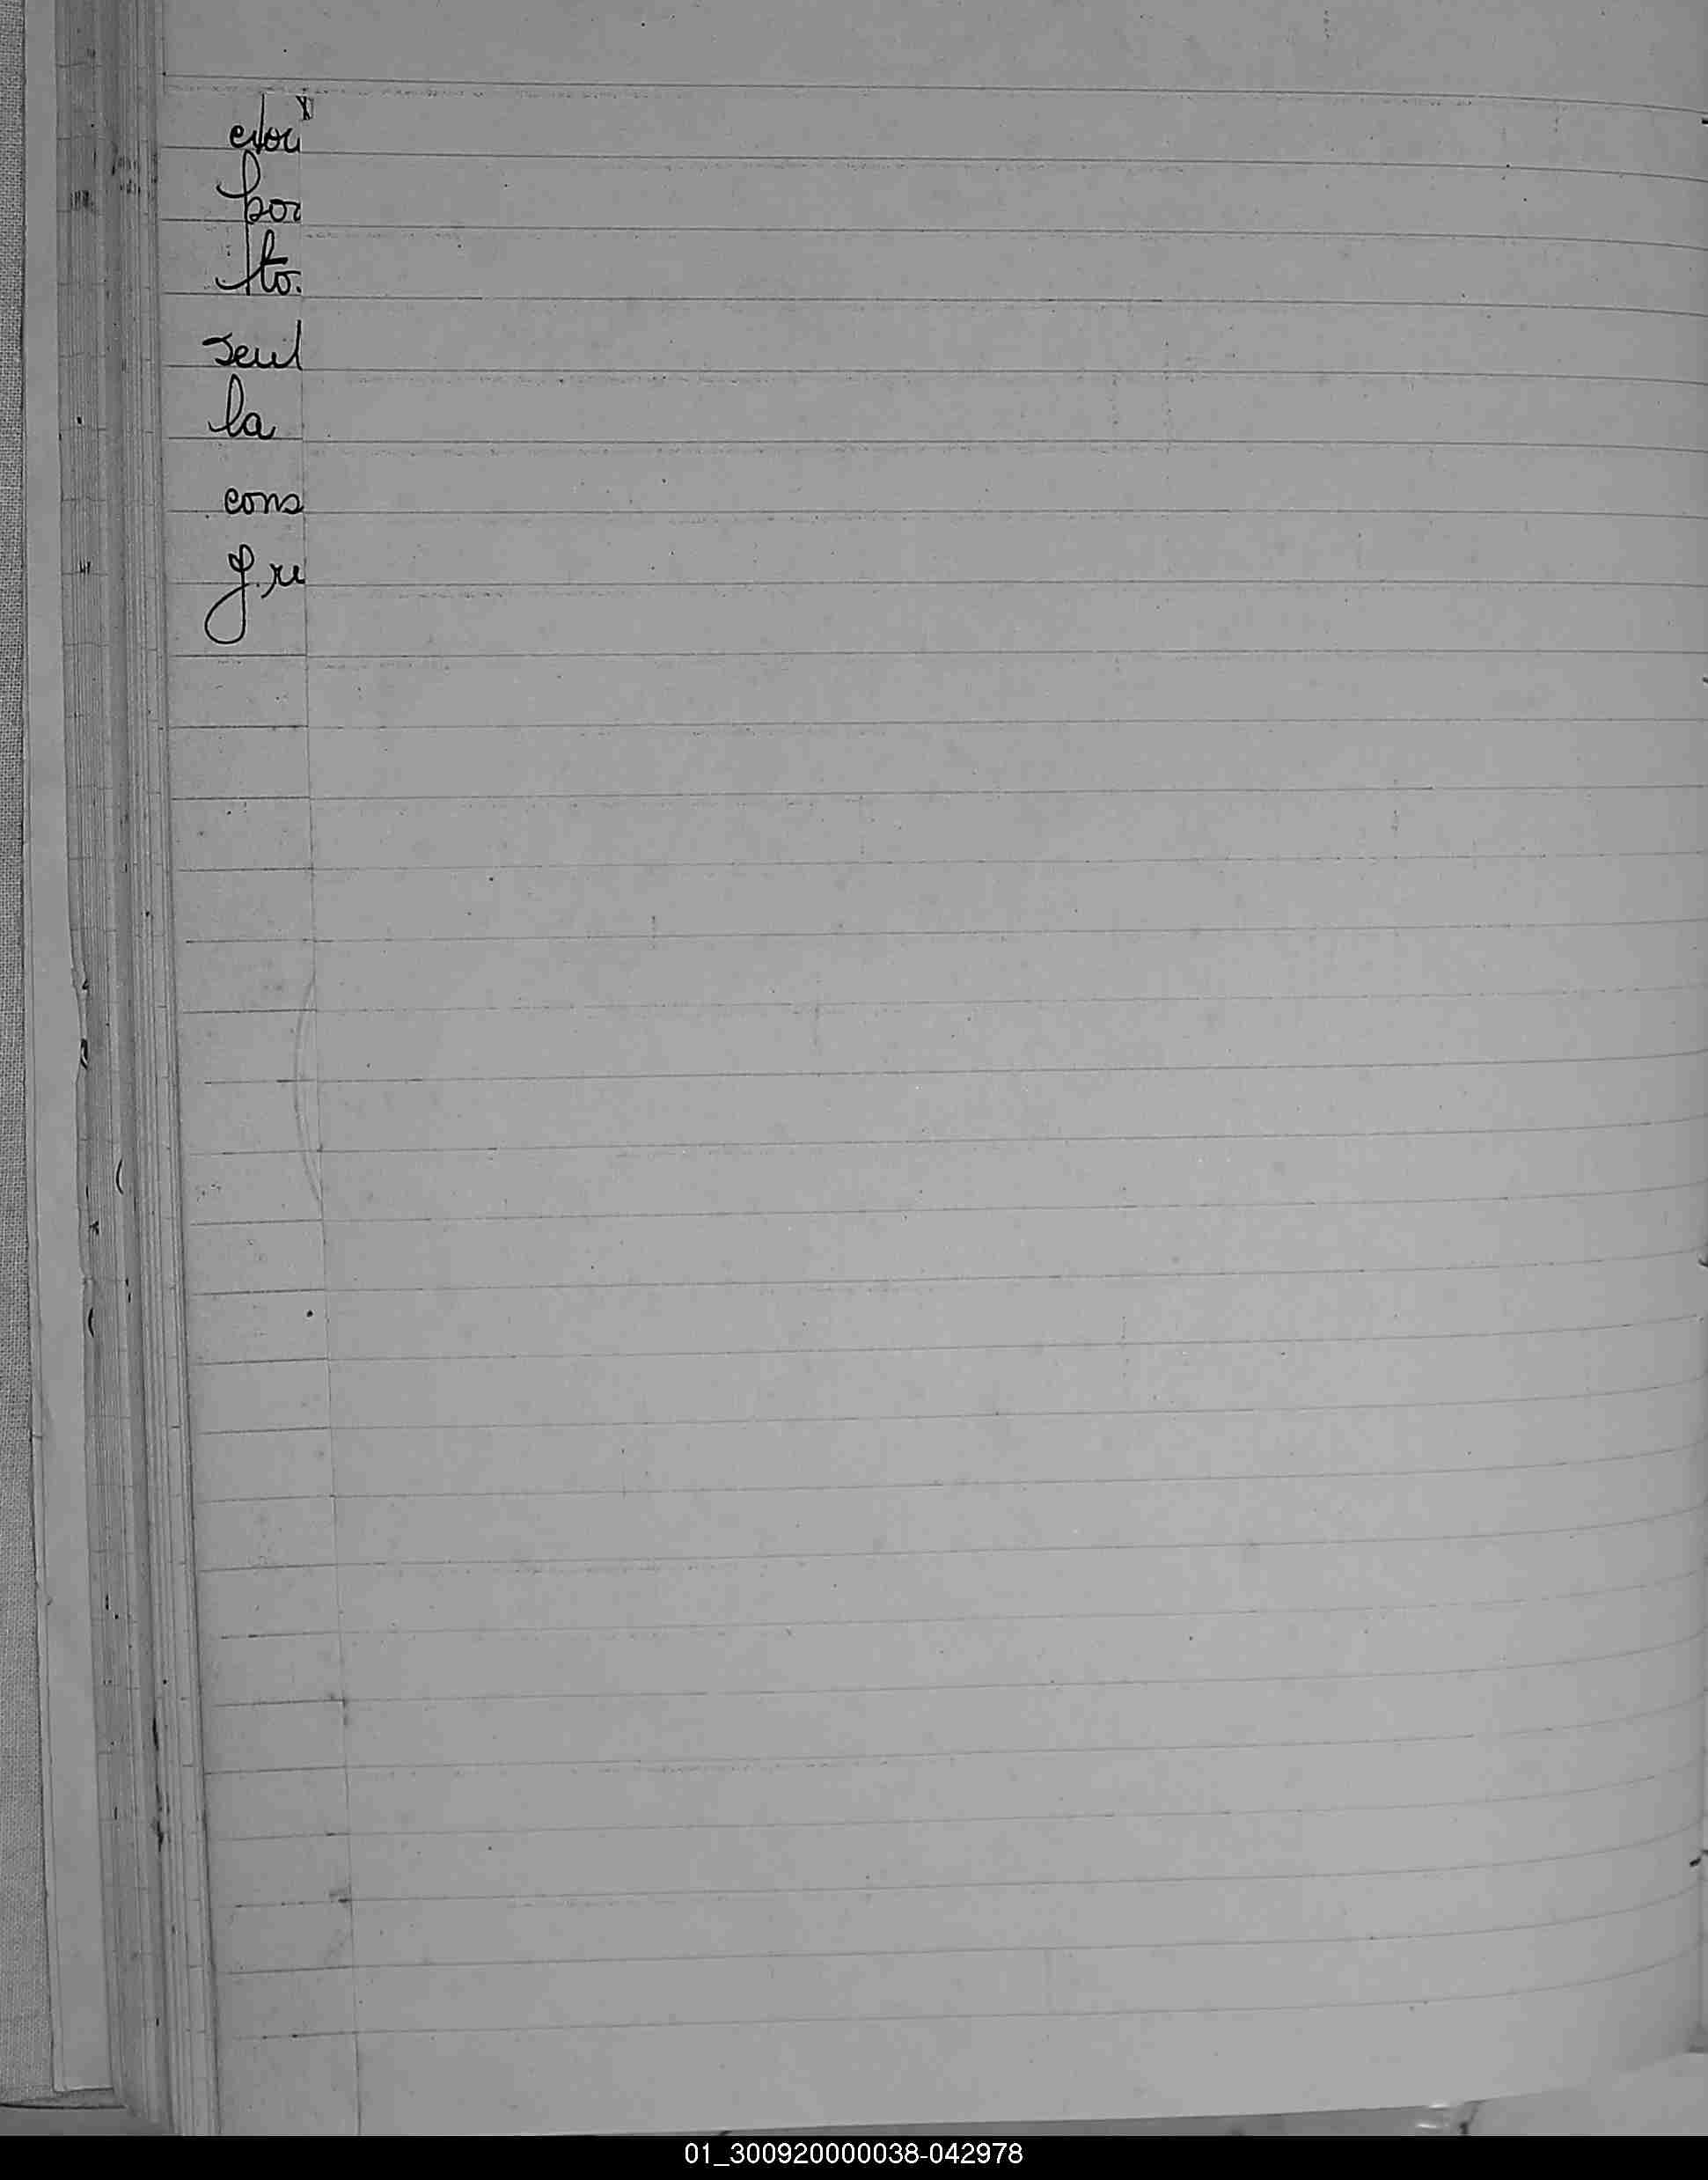 por
to.
seul
la
cons
01_300920000038-042978